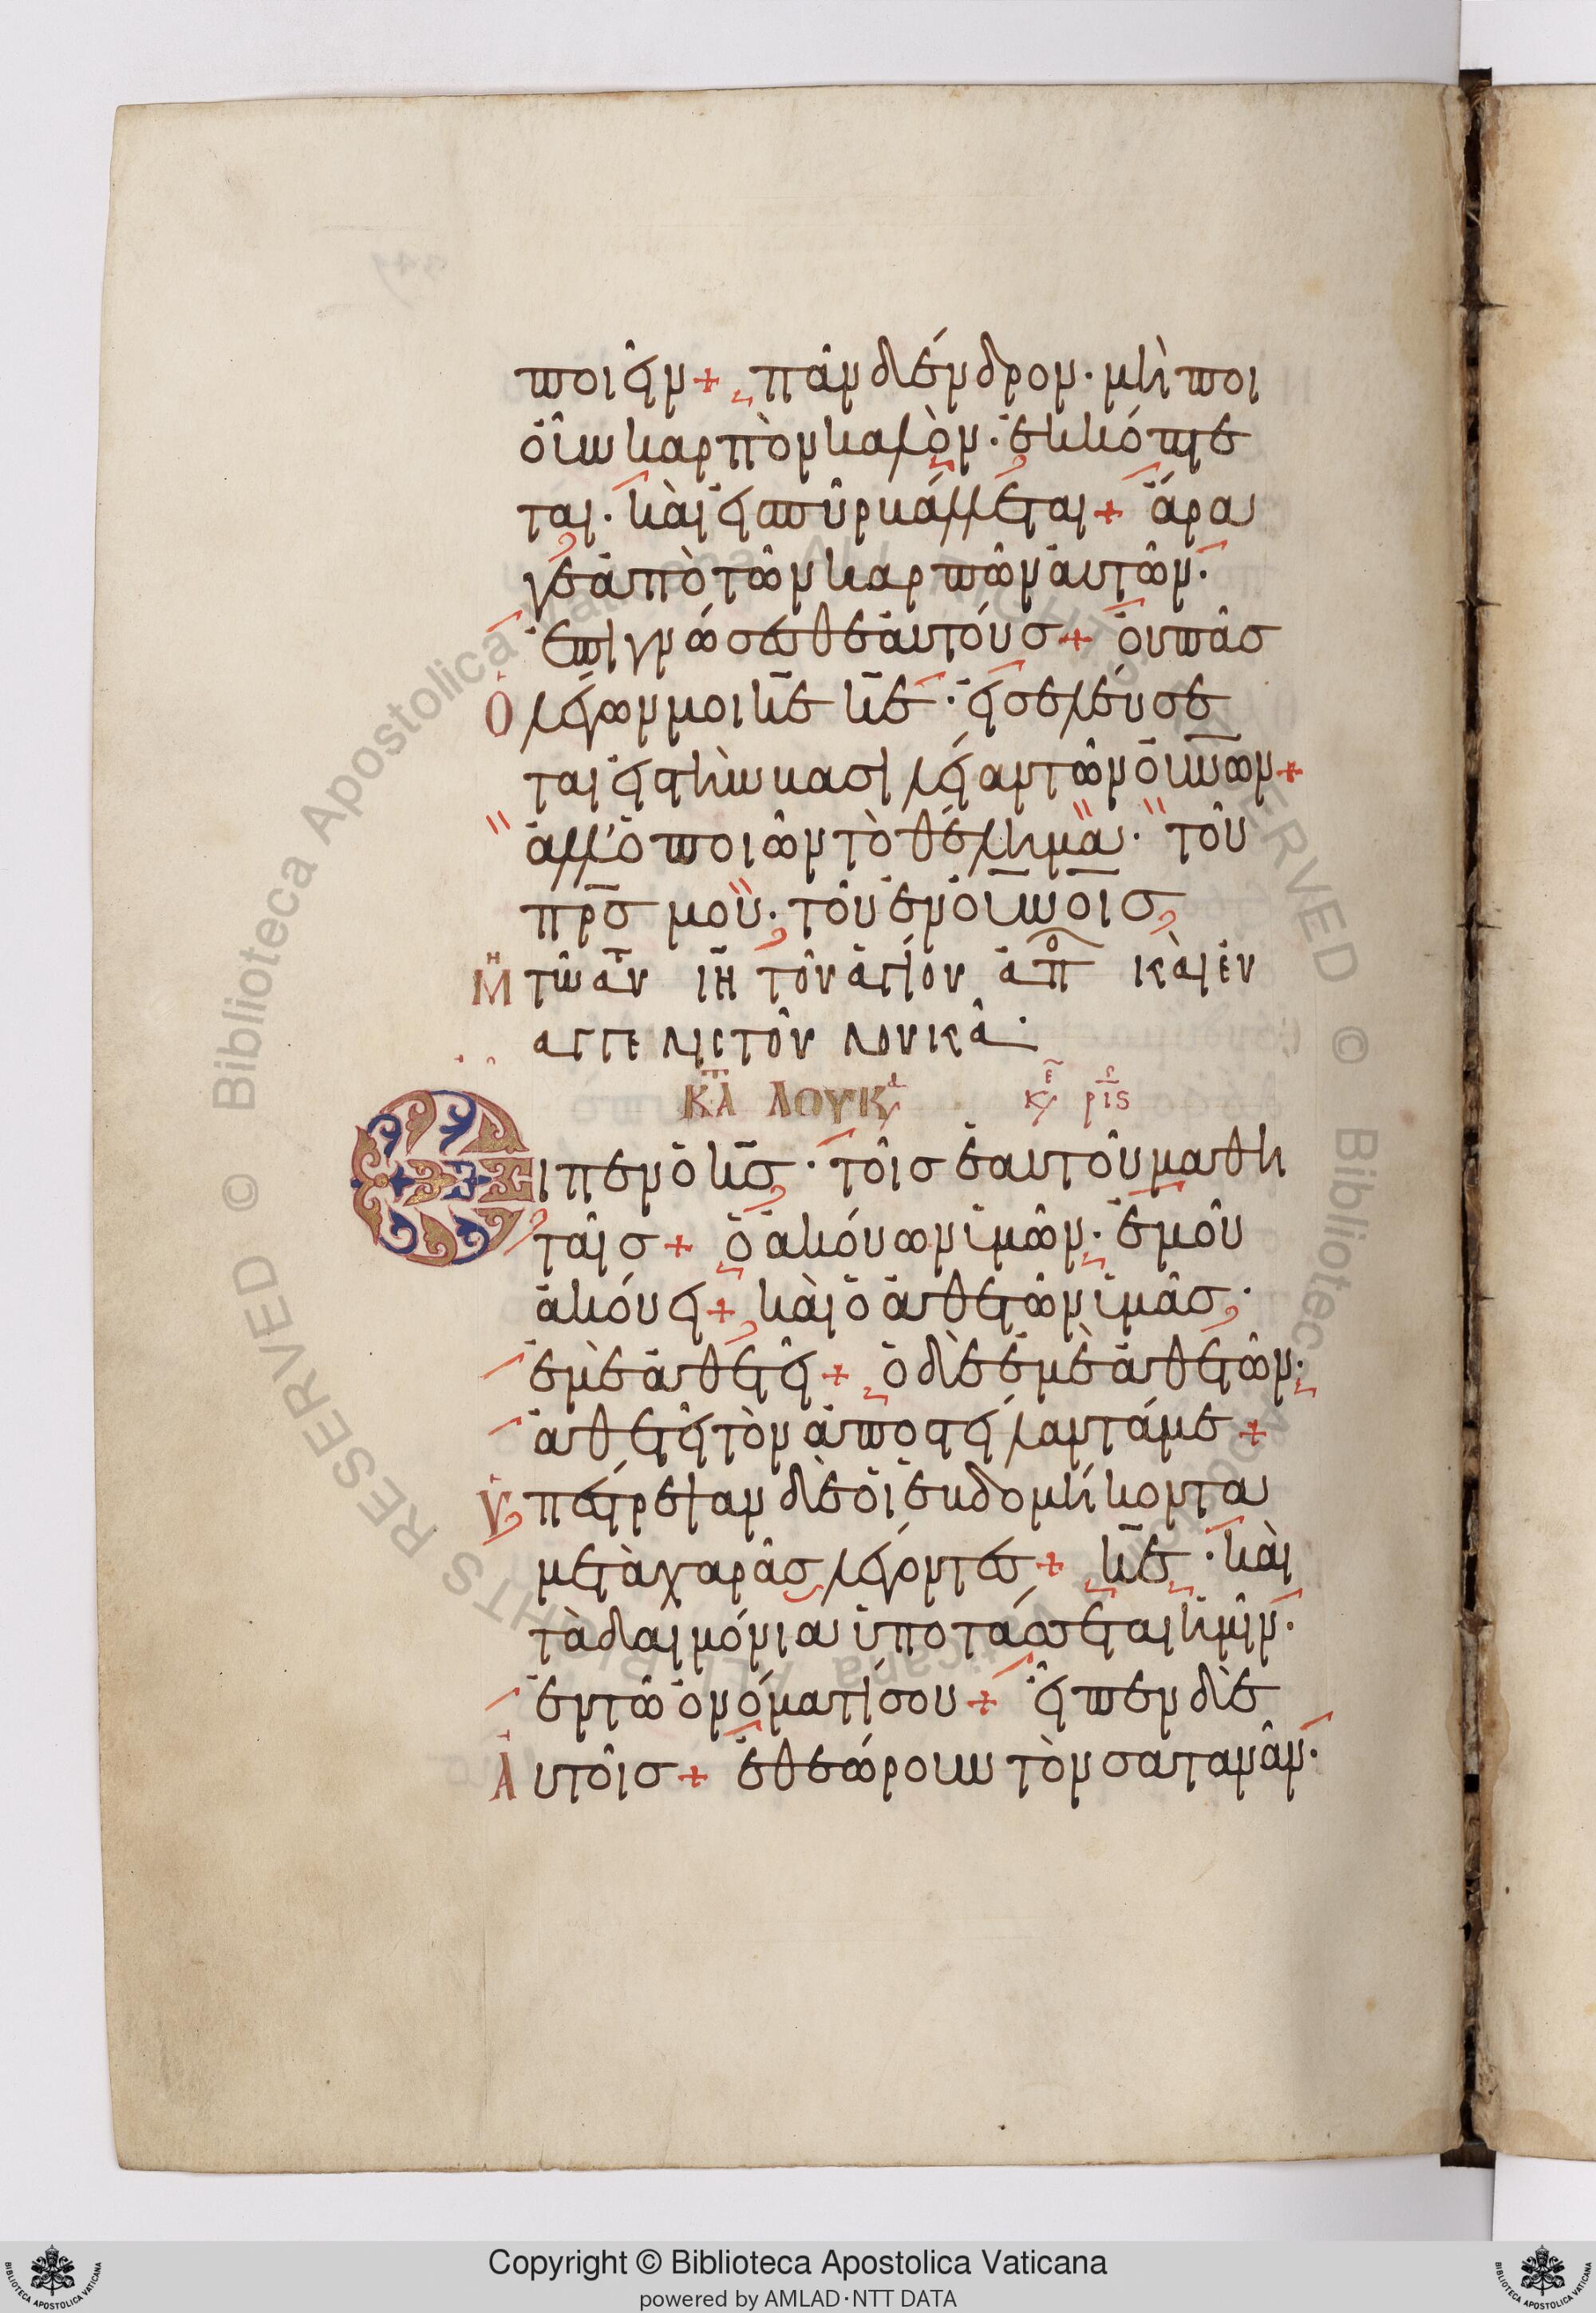 ποιεῖν + πᾶν δένδρον · μὴ ποι
οῦν καρπὸν καλὸν · ἐκκόπτε
ται · καὶ εἰς πῦρ βάλλεται + ἄρα
γε ἀπὸ τῶν καρπῶν αὐτῶν ·
ἐπιγνώσεσθε αὐτούς + οὐ πᾶσ
ὁ λέγων μοι κ̅ε̅ κ̅ε̅ · εἰσελεύσε
ται εἰς τὴν βασιλείαν τῶν ο̅υ̅ν̅ω̅ν +
ἀλλ' ὁ ποιῶν τὸ θέλημα · τοῦ
π̅ρ̅σ̅ μου · τοῦ ἐν ο̅υ̅ν̅ο̅ι̅ς
Μη τῶ αυ ιη τοῦ ἁγίου ἀπο καὶ εὐ
αγγελιστοῦ λουκᾶ ·
Κ ΛΟΥΚ κε ριϛ
Εἶπεν ὁ κ̅ς̅ · τοῖς ἑαυτοῦ μαθη
ταῖς + ὁ ἀκούων ὑμῶν · ἐμοῦ
ἀκούει + καὶ ὁ ἀθετῶν ὑμᾶς ·
ἐμὲ ἀθετεῖ + ὁ δὲ ἐμὲ ἀθετῶν ·
ἀθετεῖ τὸν ἀποστείλαντά με +
ὑπέστρεψαν δὲ οἱ ἑβδομήκοντα
μετὰ χαρᾶς λέγοντες + κ̅ε̅ · καὶ
τὰ δαιμόνια ὑποτάσσεται ἡμῖν ·
ἐν τῶ ὀνόματί σου + εἶπεν δὲ
αὐτοῖς + ἐθεώρουν τὸν σατανᾶν ·
Copyright © Biblioteca Apostolica Vaticana
powered by AMLAD·NTT DATA